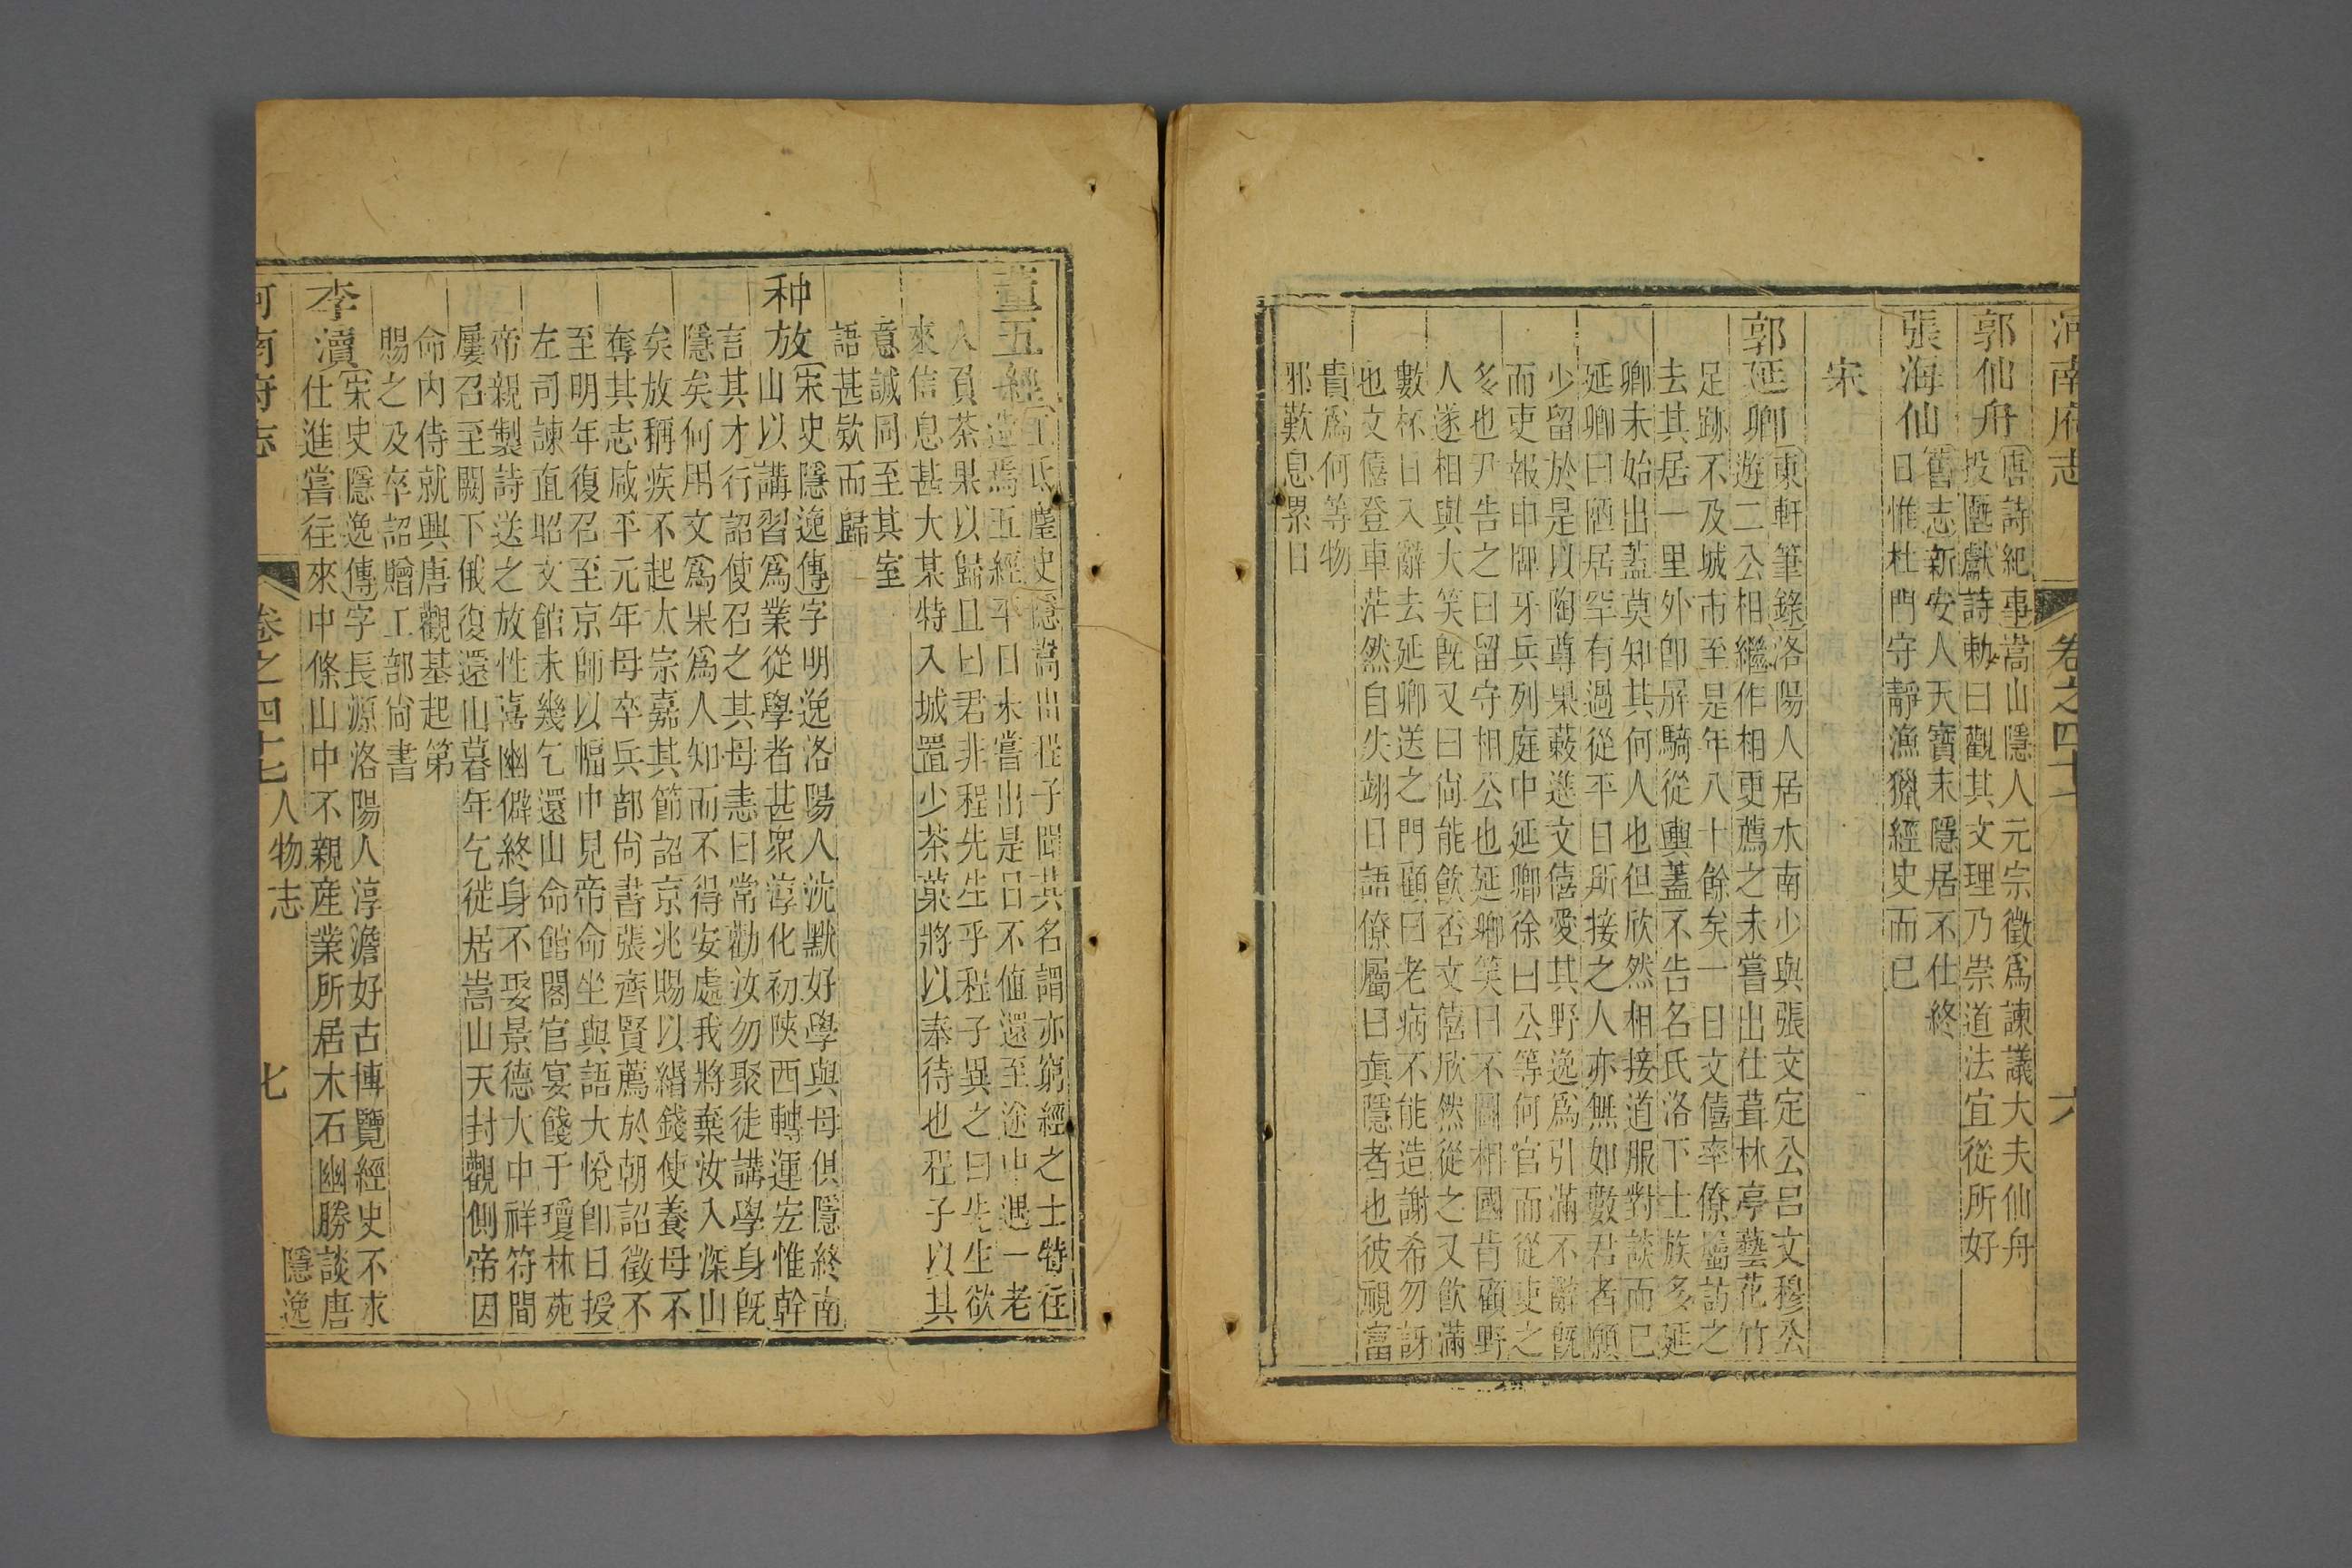 河南府志 卷之四十七 六
郭仙舟 唐詩紀事嵩山隱人元宗徵為諫議大夫仙舟
投匭獻詩勅曰觀其文理乃崇道法宜從所好
張海仙 舊志新安人天寶末隱居不仕終
日惟杜門守靜漁獵經史而已
宋
郭延卿 東軒筆錄洛陽人居水南少與張文定公呂文穆公
遊二公相繼作相更薦之未嘗出仕葺林亭藝花竹
足跡不及城市至是年八十餘矣一日文僖率僚屬訪之
去其居一里外卽屏騎從輿蓋不告名氏洛下士族多延
卿未始出蓋莫知其何人也但欣然相接道服對談而已
延卿曰陋居罕有過從平日所接之人亦無如數君者願
少留於是以陶尊果蔌進文僖愛其野逸為引滿不辭旣
而吏報申牌牙兵列庭中延卿徐曰公等何官而從吏之
多也尹告之曰留守相公也延卿笑曰不圖相國肯顧野
人遂相與大笑旣又曰尚能飲否文僖欣然從之又飲滿
數杯日入辭去延卿送之門顧曰老病不能造謝希勿訝
也文僖登車茫然自失翊日語僚屬曰眞隱者也彼視富
貴為何等物
邪歎息累日
董五經 王氏麈史隱嵩山程子聞其名謂亦窮經之士特往
造焉五經平日未嘗出是日不値還至途中遇一老
人負茶果以歸且曰君非程先生乎程子異之曰先生欲
來信息甚大某特入城置少茶菓將以奉待也程子以其
意誠同至其室
語甚欵而歸
种放 宋史隱逸傳字明逸洛陽人沈默好學與母俱隱終南
山以講習為業從學者甚眾淳化初陝西轉運宏惟幹
言其才行詔使召之其母恚曰常勸汝勿聚徒講學身旣
隱矣何用文為果為人知而不得安處我將棄汝入深山
矣放稱疾不起太宗嘉其節詔京兆賜以緡錢使養母不
奪其志咸平元年母卒兵部尚書張齊賢薦於朝詔徵不
至明年復召至京師以幅巾見帝命坐與語大悅卽日授
左司諫直昭文館未幾乞還山命館閣官宴餞于瓊林苑
帝親製詩送之放性嗜幽僻終身不娶景德大中祥符間
屢召至闕下俄復還山暮年乞徙居嵩山天封觀側帝因
命內侍就興唐觀基起第
賜之及卒詔贈工部尚書
李瀆 宋史隱逸傳字長源洛陽人淳澹好古博覽經史不求
仕進嘗往來中條山中不親産業所居木石幽勝談唐
河南府志 卷之四十七人物志 隱逸 七